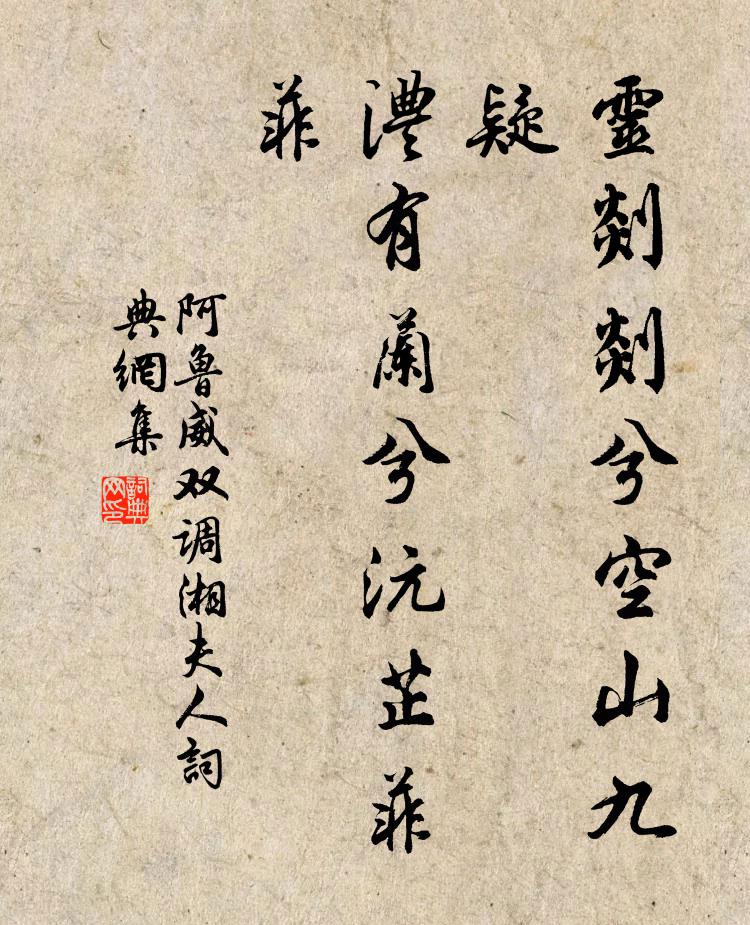 靈剡剡兮空山九
疑
澧有蘭兮沅芷菲
菲
阿魯威双调湘夫人詞
典網集
詞典网印